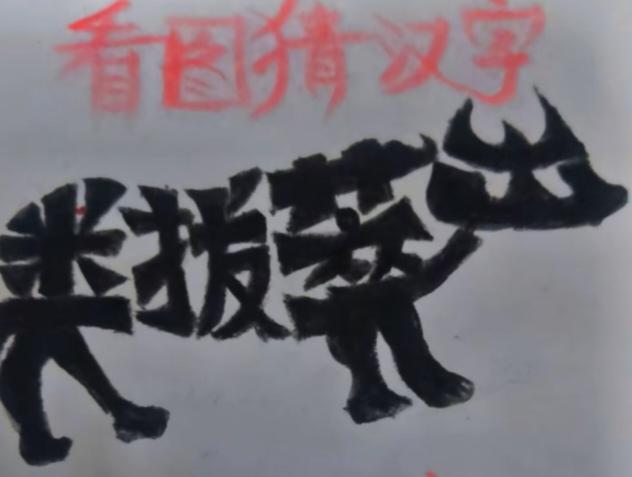 看图猜汉字
类拔萃出